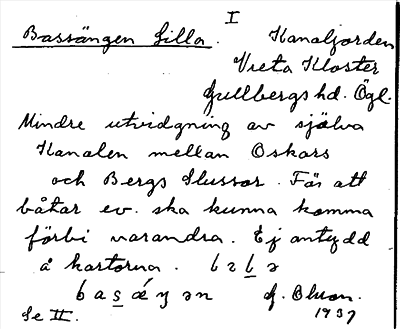 I
Bassängen Lilla. Kanaljorden
Vreta Kloster
Gullbergs hd. Ögl.
Mindre utvidgning av själva
Kanalen mellan Oskars
och Bergs Slussar. För att
båtar ev. ska kunna komma
förbi varandra. Ej antydd
å kartorna.
G. Olson.
Se II. 1937